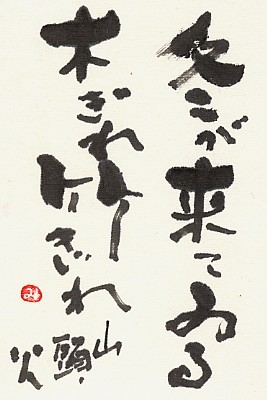 冬が来てゐる
木ぎれ竹ぎれ
山頭火